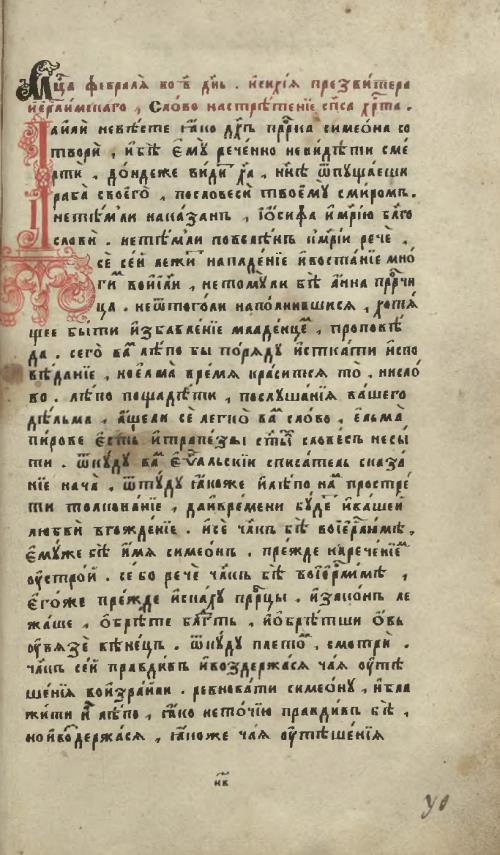 Мц҃а февралѧ во в҃ дн҃ь . и҆сихі́ѧ презви́тера
і҆ерⷭ҇ли́мскаго , Сло́во настрѣ́тенїе сп҃са хрⷭ҇та̀ .
И а҆и҆лѝ невѣ́сте ꙗ҆́ко дх҃ъ прⷪ҇рка симео́на со
творѝ , и҆бѣ̀ є҆мꙋ̀ рече́нно неви́дѣти сме́
рти , до́ндеже ви́дитъ хрⷭ҇та̀ , ны́нѣ ѿпꙋща́еши
раба̀ своего̀ , посло́веси твоемꙋ̀ съми́ромъ .
нетѣ́мли наказа́нъ , і҆ѡ҆́сифа и҆мр҃і́ю бл҃го
словѝ . нетѣ́мли повелѣ́нъ и҆мр҃і́и речѐ ,
сѐ се́й лежи́тъ напаⷣ́енїе и҆воста́нїе мно́
ги́мъ воі҆и҃ли , нетомꙋ́ли бѣ̀ а҆́нна прⷪ҇рчи
ца . неѿтого́ли напо́лнившисѧ , хотѧ́
щее бы́ти и҆збавле́нїе младе́нцеⷨ , проповѣ́
да . сего̀ ваⷨ лѣ́по бы по́рѧдꙋ и҆стка́ти и҆спо
вѣ́данїе , поелма̀ вре́мѧ краси́тсѧ то̀ . нисло́
во . лѣ́по пощадѣ́ти , послꙋша́нїѧ ва́шего
дѣ́льма , а҆́щели сѐ легко̀ ваⷨ сло́во , є҆́льма̀
пи́рове є҆́сть и҆трапе́зы ст҃ы́й слове́съ несы́
ти . ѿкꙋ́дꙋ ваⷨ є҆ѵⷢ҇льскїи списа́тель сказа́
нїе нача̀ , ѿтꙋ́дꙋ ꙗ҆́коже и҆лѣ́по наⷨ простре́
ти толкова́нїе , даи҆вре́мени бꙋ́детъ и҆ва́шей
любвѝ вгожде́нїе . и҆сѐ чл҃къ бѣ̀ воі҆ерⷭ҇ли́мѣ ,
є҆мꙋ́же бѣ̀ и҆́мѧ симео́нъ . пре́жде нарече́нїеⷨ
оу҆стро́й . се́бо речѐ чл҃къ бѣ̀ воі҆ерⷭ҇ли́мѣ ,
є҆го́же пре́жде и҆ска́хꙋ прⷪ҇рцы . и҆зако́нъ ле
жа́ше , ѻ҆брѣ́те бл҃гть , и҆ѡ҆брѣ́тши ѻ҆́бъ
оу҆вѧзѐ вѣне́цъ . ѿкꙋ́дꙋ плете́тъ , смотрѝ .
чл҃къ се́й пра́вдивъ и҆воздержа́сѧ ча́ѧ оу҆тѣ
ше́нїѧ воі҆зра́или . ревнова́ти симео́нꙋ , и҆бла
жи́ти и҆̀ лѣ́по , ꙗ҆́ко нето́чїю пра́вдивъ бѣ̀ ,
нои҆воздержа́сѧ , ꙗ҆́коже ча́ѧ оу҆тѣше́нїѧ